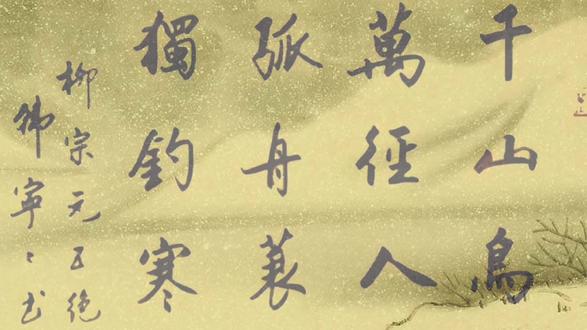 千山鳥
萬徑人
孤舟蓑
獨釣寒
柳宗元五绝
寧〻书